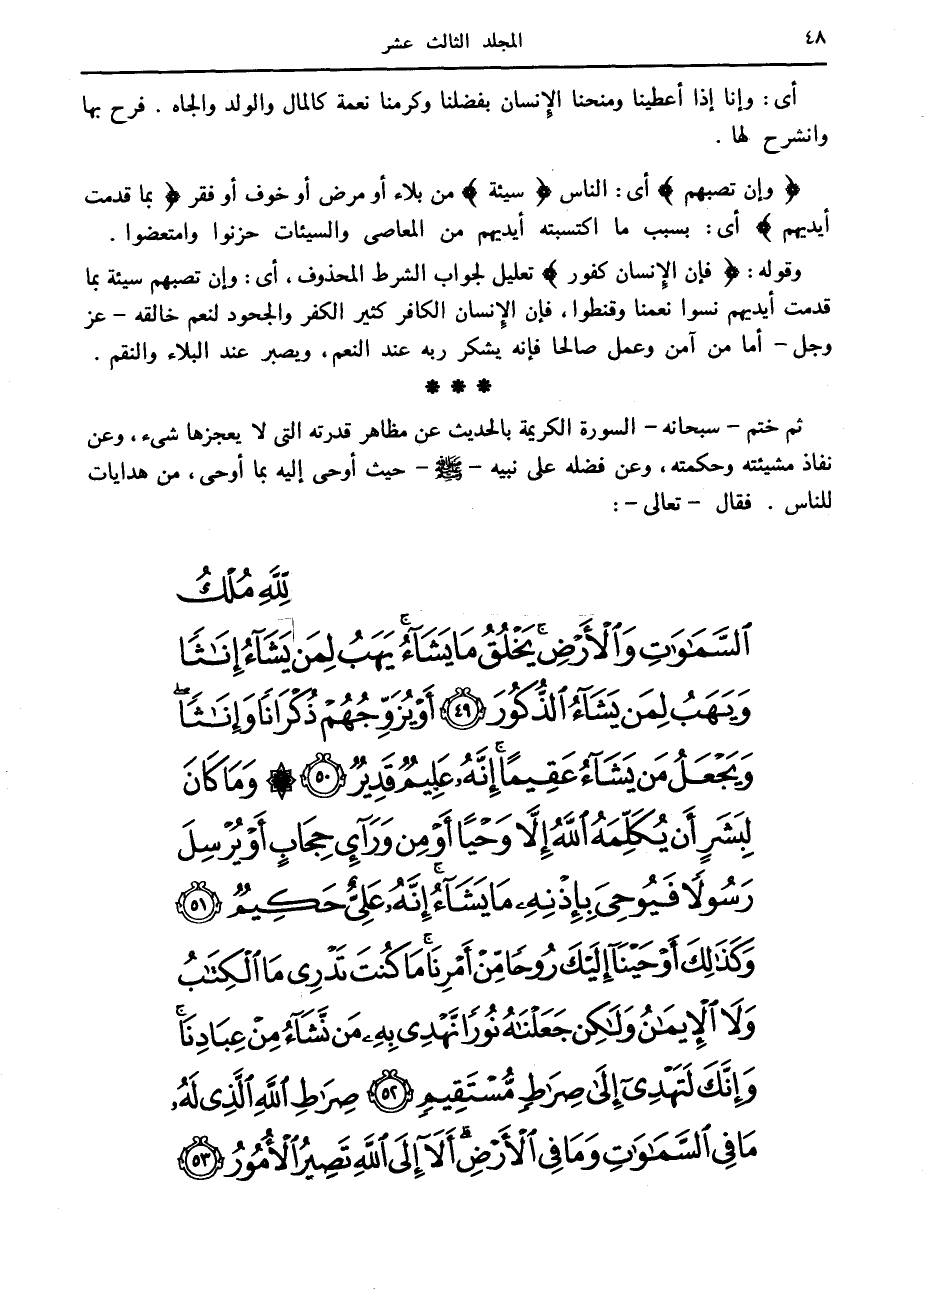 ٤٨
المجلد الثالث عشر
أى : وإنا إذا أعطينا ومنحنا الإنسان بفضلنا وكرمنا نعمة كالمال والولد والجاه . فرح بها
وانشرح لها .
﴿ وإن تصبهم ﴾ أى : الناس ﴿ سيئة ﴾ من بلاء أو مرض أو خوف أو فقر ﴿ بما قدمت
أيديهم ﴾ أى : بسبب ما اكتسبته أيديهم من المعاصى والسيئات حزنوا وامتعضوا .
وقوله : ﴿ فإن الإنسان كفور ﴾ تعليل لجواب الشرط المحذوف ، أى : وإن تصبهم سيئة بما
قدمت أيديهم نسوا نعمنا وقنطوا ، فإن الإنسان الكافر كثير الكفر والجحود لنعم خالقه – عز
وجل – أما من آمن وعمل صالحا فإنه يشكر ربه عند النعم ، ويصبر عند البلاء والنقم .
* * *
ثم ختم – سبحانه – السورة الكريمة بالحديث عن مظاهر قدرته التى لا يعجزها شىء ، وعن
نفاذ مشيئته وحكمته ، وعن فضله على نبيه – ﷺ – حيث أوحى إليه بما أوحى ، من هدايات
للناس . فقال – تعالى – :
لِّلَّهِ مُلْكُ
ٱلسَّمَٰوَٰتِ وَٱلْأَرْضِۚ يَخْلُقُ مَا يَشَآءُۚ يَهَبُ لِمَن يَشَآءُ إِنَٰثًا
وَيَهَبُ لِمَن يَشَآءُ ٱلذُّكُورَ ﴿٤٩﴾ أَوْ يُزَوِّجُهُمْ ذُكْرَانًا وَإِنَٰثًاۖ
وَيَجْعَلُ مَن يَشَآءُ عَقِيمًاۚ إِنَّهُۥ عَلِيمٌ قَدِيرٌ ﴿٥٠﴾ ۞ وَمَا كَانَ
لِبَشَرٍ أَن يُكَلِّمَهُ ٱللَّهُ إِلَّا وَحْيًا أَوْ مِن وَرَآيِٕ حِجَابٍ أَوْ يُرْسِلَ
رَسُولًا فَيُوحِىَ بِإِذْنِهِۦ مَا يَشَآءُۚ إِنَّهُۥ عَلِىٌّ حَكِيمٌ ﴿٥١﴾
وَكَذَٰلِكَ أَوْحَيْنَآ إِلَيْكَ رُوحًا مِّنْ أَمْرِنَاۚ مَا كُنتَ تَدْرِى مَا ٱلْكِتَٰبُ
وَلَا ٱلْإِيمَٰنُ وَلَٰكِن جَعَلْنَٰهُ نُورًا نَّهْدِى بِهِۦ مَن نَّشَآءُ مِنْ عِبَادِنَاۚ
وَإِنَّكَ لَتَهْدِىٓ إِلَىٰ صِرَٰطٍ مُّسْتَقِيمٍ ﴿٥٢﴾ صِرَٰطِ ٱللَّهِ ٱلَّذِى لَهُۥ
مَا فِى ٱلسَّمَٰوَٰتِ وَمَا فِى ٱلْأَرْضِۗ أَلَآ إِلَى ٱللَّهِ تَصِيرُ ٱلْأُمُورُ ﴿٥٣﴾